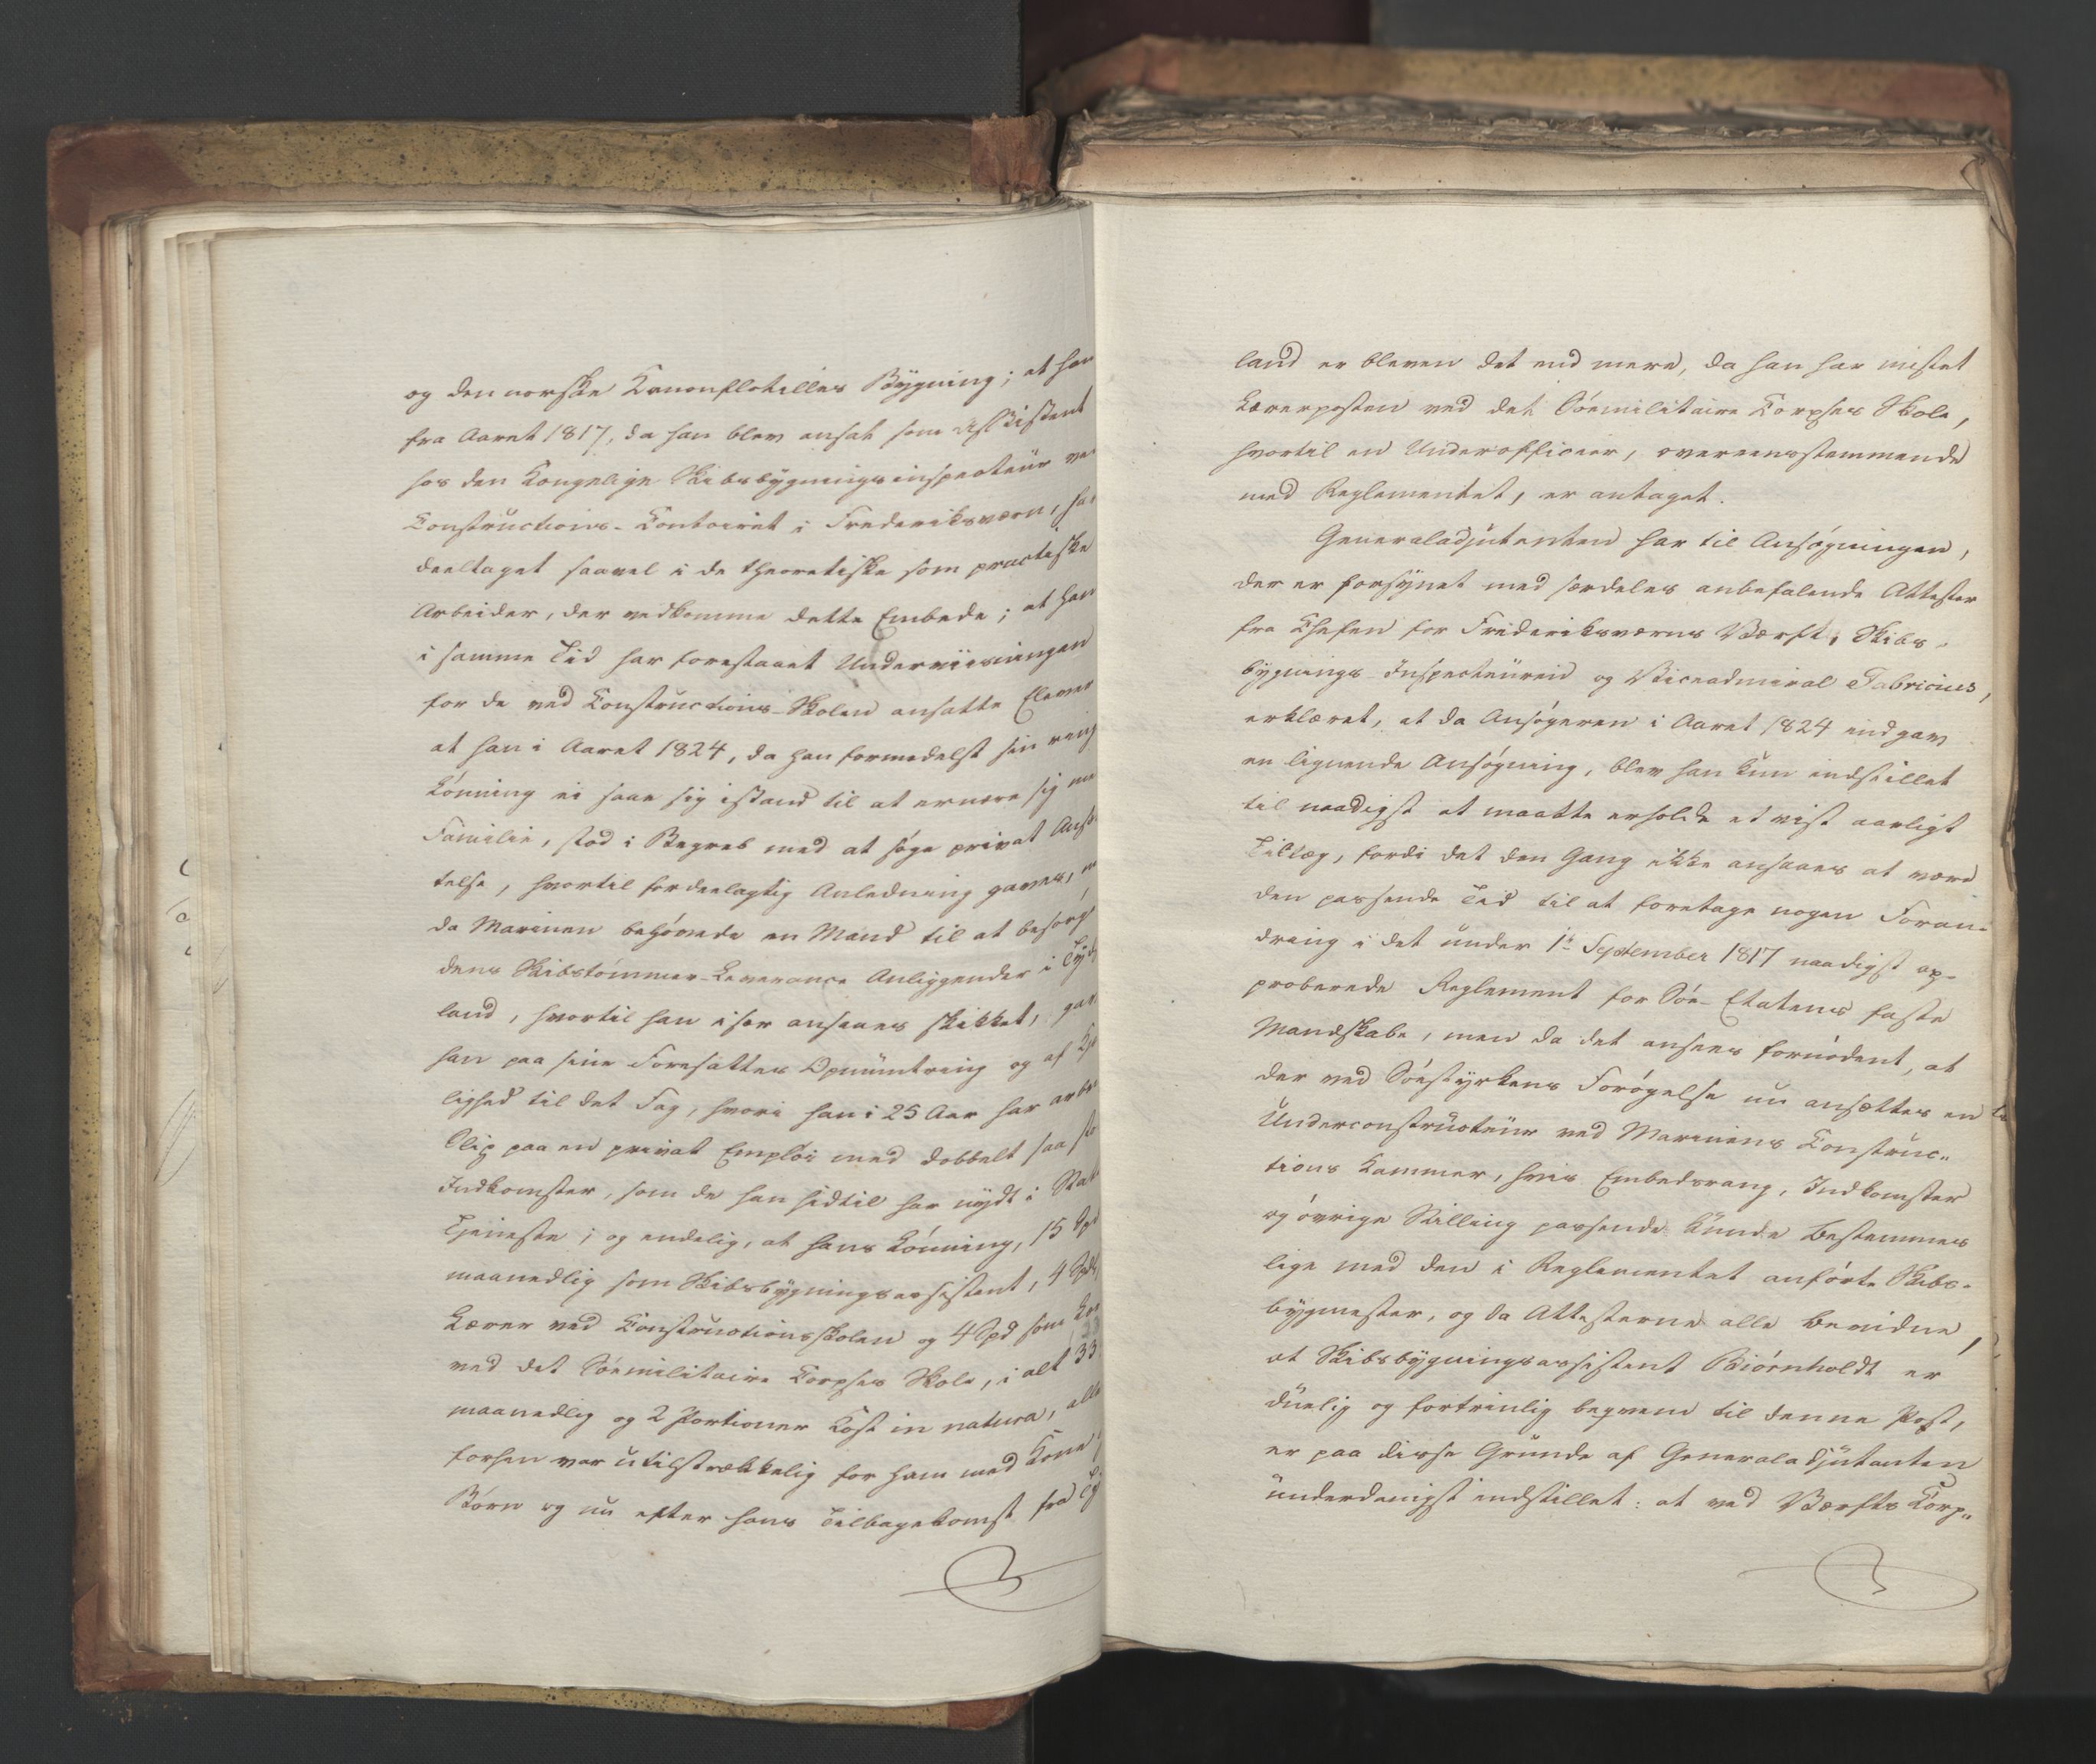 og den norske Kanonflotilles Bygning; at han
fra Aaret 1817, da han blev ansat som Assistent
hos den Kongelige Skibsbygningsinspecteur ve
Constructions-Contoiret i Frederiksværn, ha
deeltaget saavel i de theoretiske som practiske
Arbeider, der vedkomme dette Embede; at han
i samme Tid har forestaaet Underviisningen
for de ved Constructions-Skolen ansatte Elever
at han i Aaret 1824, da han formedelst sin ring
Lønning ei saae sig istand til at ernære sig me
Familie, stod i Begreb med at søge privat Ansæ
telse, hvortil fordeelagtig Anledning gaves, m
da Marinen behøvede en Mand til at besørge
dens Skibstømmer-Leverance Anliggender i Tyds
land, hvortil han især ansaaes skikket, gav
han paa sine Foresattes Opmuntring og af Kjær
lighed til det Fag, hvori han i 25 Aar har arbei
Slip paa en privat Emploi med dobbelt saa sto
Indkomster, som de han hidtil har nydt i Stat
Tjeneste; og endelig, at hans Lønning, 15 Spd
maanedlig som Skibsbygningsassistent, 4 Spd
Lærer ved Constructionsskolen og 4 Spd som Lær
ved det Søemilitaire Corpses Skole, i alt 33
maanedlig og 2 Portioner Kost in natura, alle
forhen var utilstrækkelig for ham med Kone
Børn og nu efter hans Tilbagekomst fra Ty
land er bleven det end mere, da han har mistet
Lærerposten ved det Søemilitaire Corpses Skole,
hvortil en Underofficeer, overeensstemmende
med Reglementet, er antaget.
Generaladjutanten har til Ansøgningen,
der er forsynet med særdeles anbefalende Attester
fra Chefen for Frideriksværns Værft, Skibs-
bygnings-Inspecteuren og Viceadmiral Fabricius,
erklæret, at da Ansøgeren i Aaret 1824 indgav
en lignende Ansøgning, blev han kun indstillet
til naadigst at maatte erholde et vist aarligt
Tillæg, fordi det den Gang ikke ansaaes at være
den passende Tid til at foretage nogen Foran-
dring i det under 1te September 1817 naadigst ap-
proberede Reglement for Søe-Etatens faste
Mandskabe, men da det ansees fornødent, at
der ved Søestyrkens Forøgelse nu ansættes en
Underconstructeur ved Marinens Construc„
tions Kammer, hvis Embedsrang, Indkomster
og øvrige Stilling passende kunde bestemmes
lige med den i Reglementet anførte Skibs-
bygmester, og da Attesterne alle bevidne,
at Skibsbygningsassistent Biørnholdt er
duelig og fortrinlig beqvem til denne Post,
er paa disse Grunde af Generaladjutanten
underdanigst indstillet: at ved Værfts Corp„